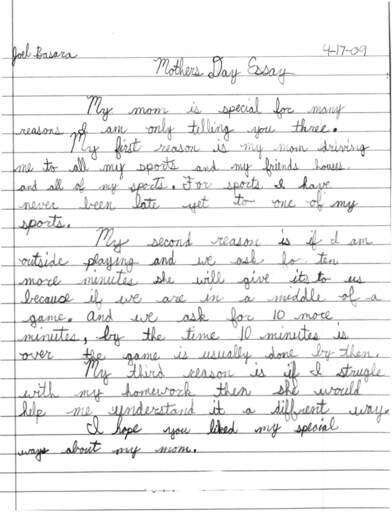 Joel Basara 4-17-09
Mothers Day Essay
My mom is special for many
reasons I am only telling you three.
My first reason is my mom driving
me to all my sports and my friends houses
and all of my sports. For sports I have
never been late yet to one of my
sports.
My second reason is if I am
outside playing and we ask for ten
more minutes she will give it to us
because if we are in a middle of a
game. And we ask for 10 more
minetes, by the time 10 minetes is
over the game is usually done by then.
My third reason is if I strugle
with my homework then she would
help me understand it a diffrent way.
I hope you liked my special
ways about my mom.